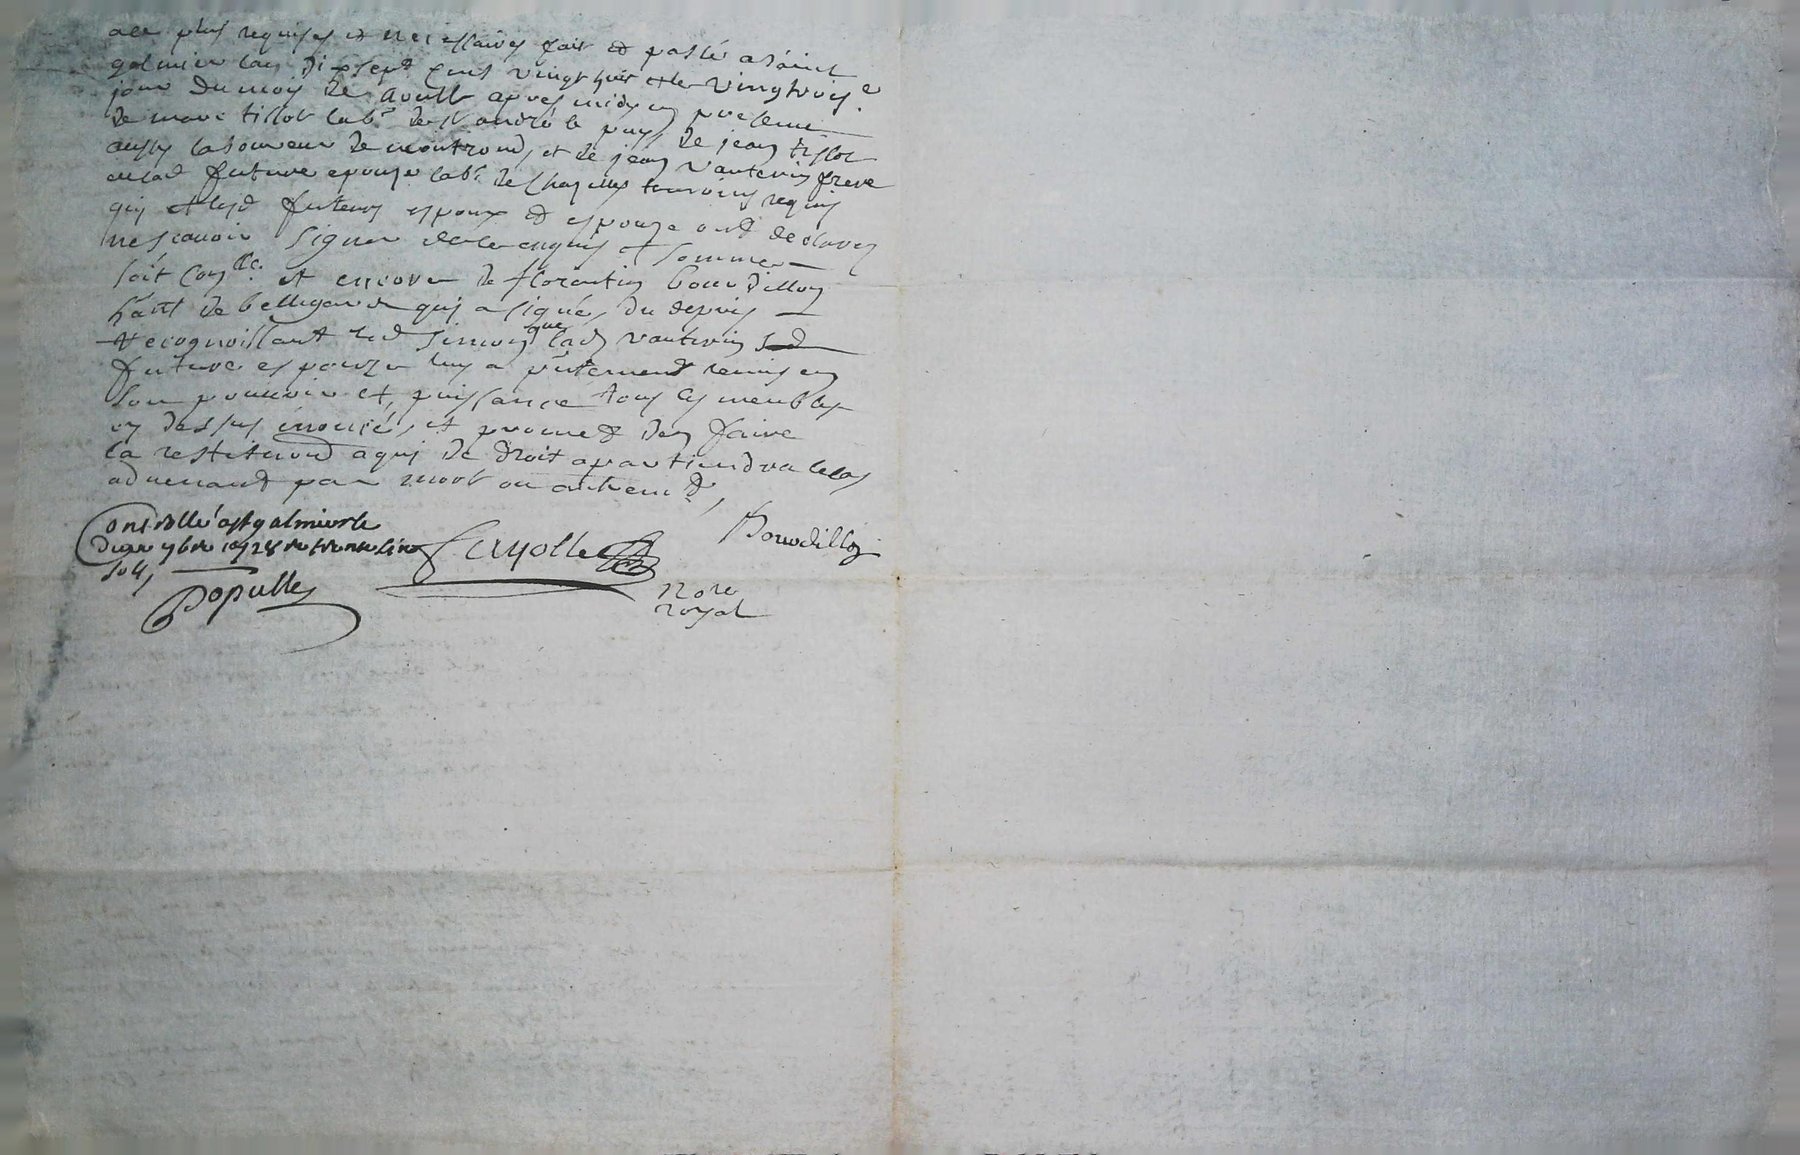 ace plus requises et necessaires fait et passé a Saint
galmier lan dixsept cent vingt huit et le vingtrois.e
jour du mois de aoust apres midy en presence
de marc tissot labr de St andré le puy, de jean tissot
aussy laboureur de montrond, et de jean vanterin frere
alad future epouze labr de Chazelles temoins requis
quy et lesd futeurs espoux et espouze ont declarez
ne scavoir signer de ce enquis et sommer
soit con.lle et encore de florentin bourdillon
hant de bellegarde quy a signé, du depuis
recognoissant led simon que lad vanterin
future espouze luy a pntement remis en
son pouvoir et puissance tous les meubles
cy dessus énoncé, et promet den faire
la restitution a quy de droit apartiendra le cas
advenant par mort ou autremt,
Bourdillon
Controllé a St galmier le
dixe 7bre 1728 re trente six
sols
Fayolle
Nore
royal
Populle